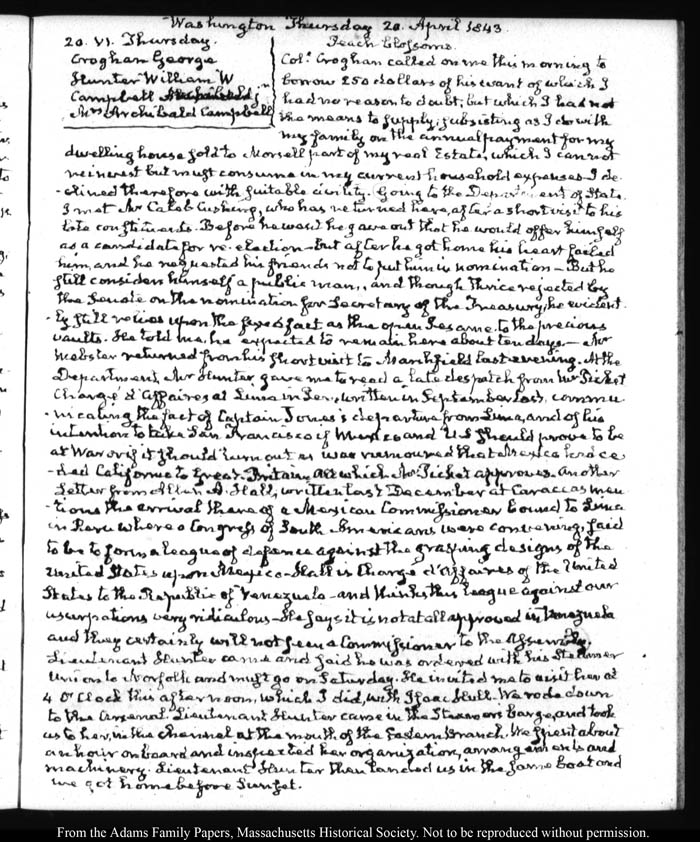 Washington Thursday 20. April 1843.
20. VI. Thursday.
Croghan George
Hunter William W
Campbell Archibald jr.
Mrs Archibald Campbell
Peach blossoms.
Col. Croghan called on me this morning to
borrow 250 dollars of his want of which I
had no reason to doubt, but which I had not
the means to supply, subsisting as I do with
my family on the annual payment for my
dwelling house sold to Morsell part of my real Estate, which I cannot
reinvest but must consume in my current household expenses. I de-
-clined therefore with suitable civility. Going to the Department of State
I met Mr Caleb Cushing, who has returned here, after a short visit to his
late constituents. Before he went he gave out that he would offer himself
as a candidate for re-election—but after he got home his heart failed
him, and he requested his friends not to put him in nomination—But he
still considers himself a public man, and though thrice rejected by
the Senate on the nomination for Secretary of the Treasury, he evident-
-ly still relies upon the fixed fact as the open Sesame to the precious
vaults. He told me, he expected to remain here about ten days.—Mr
Webster returned from his short visit to Marshfield last evening. At the
Department, Mr Hunter gave me to read a late despatch from Mr Picket
Chargé d'Affaires at Lima in Peru, written in September last, commu-
-nicating the fact of Captain Jones's departure from Lima, and of his
intention to take San Francisco if Mexico and U.S. should prove to be
at War or if it should turn out as was rumoured that Mexico had ce-
-ded California to Great-Britain, all which Mr Picket approves. Another
Letter from Allen A. Hall, written last December at Caraccas men-
-tions the arrival there of a Mexican Commissioner bound to Lima
in Peru where a Congress of South Americans were convening, said
to be to form a league of defence against the grasping designs of the
United States upon Mexico—Hall is Chargé d'Affaires of the United
States to the Republic of Venezuela—and thinks this league against our
usurpations very ridiculous—He says it is not at all approved in Venezuela
and they certainly will not send a Commissioner to the Assembly.
Lieutenant Hunter came and said he was ordered with his Steamer
Union to Norfolk and must go on Saturday. He invited me to visit her at
4 O'Clock this afternoon, which I did, with Isaac Hull. We rode down
to the Arsenal. Lieutenant Hunter came in the Steamers barge, and took
us to her, in the channel at the mouth of the Eastern Branch. We spent about
an hour on board and inspected her organization, arrangements and
machinery. Lieutenant Hunter then landed us in the same boat and
we got home before Sunset.
From the Adams Family Papers, Massachusetts Historical Society. Not to be reproduced without permission.